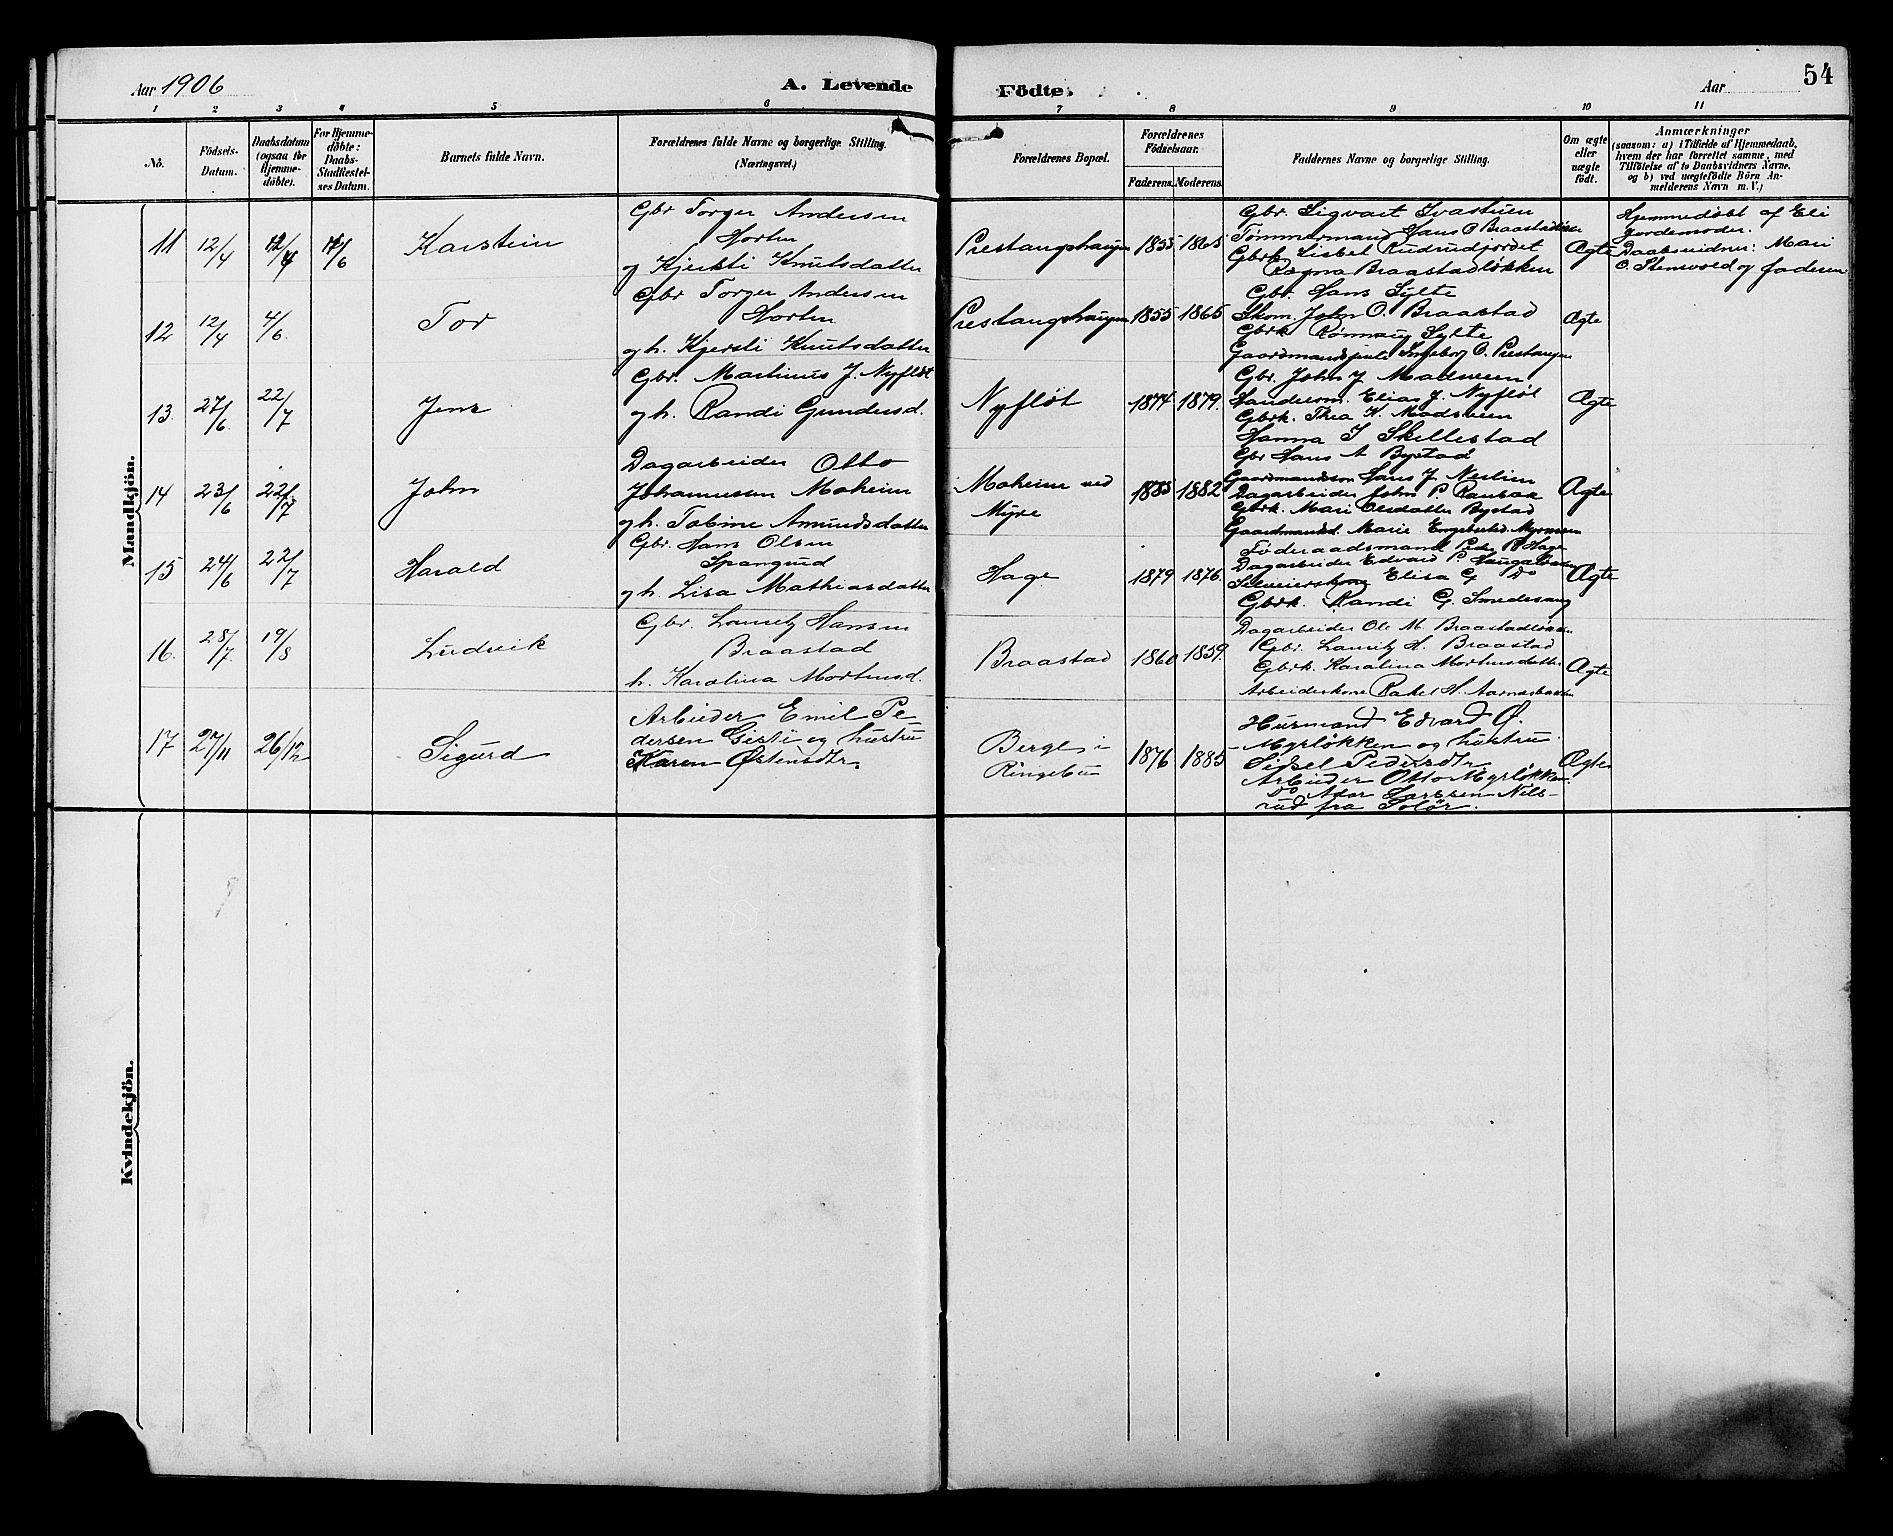 Aar 1906
A. Levende
Födte.
Aar
54
1 2 3 4 5 6 7 8 9 10 11
No.
Födsels-
Datum.
Daabsdatum
(ogsaa for
Hjemme-
döbte).
For Hjemme-
döbte:
Daabs-
Stadfæstel-
ses Datum.
Barnets fulde Navn.
Forældrenes fulde Navne og borgerlige Stilling.
(Næringsvei.)
Forældrenes Bopæl.
Forældrenes
Födselsaar.
Faderens. Moderens.
Faddernes Navne og borgerlige Stilling.
Om ægte
eller
uægte
födt.
Anmærkninger
(saasom: a) i Tilfælde af Hjemmedaab,
hvem der har forrettet samme, med
Tilföielse af to Daabsvidners Navne,
og b) ved uægtefödte Börn An-
melderens Navn m. V.)
Mandkjön.
11 12/4 12/4 4/6 Karstein
Gbr Torger Andersen
Horten
og Kjersti Knutsdatter
Prestangshaugen 1855 1865
Gbr. Sigvart Ivastuen
Tømmermand Hans O Braastadløkk
Gbrk. Lisbet Rudrudjordet
Ragna Braastadløkken
Ægte
Hjemmedøbt af Eli
Jordemoder.
Daabsvidner: Mari
O. Stensvold og faderen
12 12/4 4/6 Tor
Gbr Torger Andersen
Horten
og h. Kjersti Knutsdatter
Prestangshaugen 1855 1865
Gbr. Hans Sylte
Skom. John O. Braastad
Gbrk Rønnaug Sylte
Gaardmandspike Ingeborg O. Prestangen
Ægte
13. 27/6 22/7 Jens
Gbr. Martinus J. Nyfløt
og h. Randi Gundersd.
Nyfløt 1874 1879.
Gbr. John J Madsveen
Handelsm. Elias J. Nyfløt
Gbrk. Thea K. Madsveen
Hanna J Skellestad
Ægte
14 23/6 22/7 John
Dagarbeider Otto
Johannessen Moheim
og h. Tobine Amundsdatter
Moheim ved
Myre
1883 1882
Gbr Hans A Bystad
Gaardmandssøn Hans J. Neslien
Dagarbeider John P. Raubak
Gbrk. Mari Olsdatter Bystad
Gaardmandsd. Marie Engebretsd. Myrmoen
Ægte
15 24/6 22/7 Harald
Gbr. Hans Olsen
Spangrud
og h. Lisa Mathiasdatter
Hage 1879 1876.
Føderaadsmand Peder P Hage
Dagarbeider Edvard P. Haugaløkken
Selveierskone Elisa G Do
Gbrk. Randi G. Smedesang
Ægte
16. 28/7 19/8 Ludvik
Gbr. Lauritz Hansen
Braastad
h. Karolina Mortensd.
Braastad 1860 1859.
Dagarbeider Ole M. Braastadløkken
Gbr. Lauritz H. Braastad
Gbrk. Karolina Mortensdatter
Arbeiderskone Rakel H. Aarnesbakken
Ægte
17 27/11 26/12 Sigurd
Arbeider Emil Pe-
dersen Gisti og hustru
Karen Østensdtr.
Berge i
Ringebu
1876 1885
Husmand Edvard Ø.
Myrløkken og hustru
Sidsel Pedersdtr.
Arbeider Otto Myrløkken
Do Larssen Nils-
rud fra Solør.
Ægte
Kvindekjön.